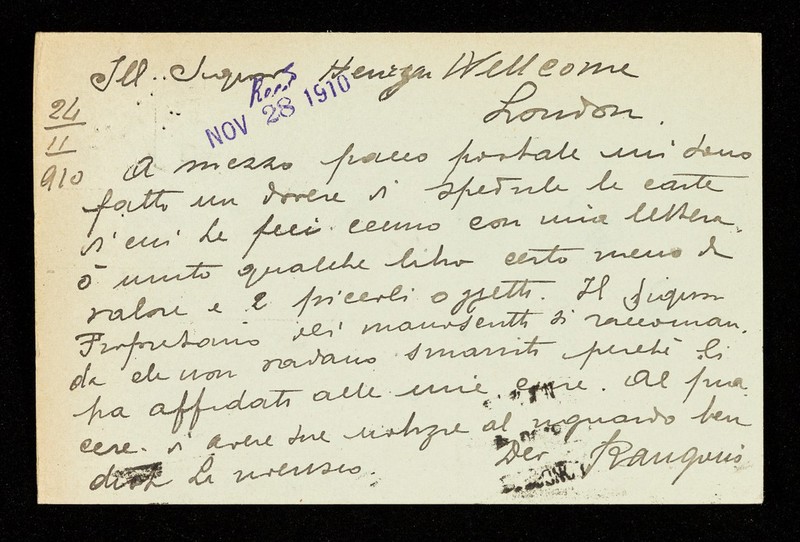 Ill. Signor Henry Wellcome
London.
24
11
910
Rec'd
NOV 28 1910
A mezzo pacco postale mi sono
fatto un dovere di spedirle le carte
di cui Le feci cenno con mia lettera.
ò unito qualche libro certo meno di
valore e 2 piccoli oggetti. Il Signor
Proprietario dei manoscritti si raccoman.
da che non vadano smarriti perchè li
ha affidati alle mie cure. Al pia.
cere di avere sue notizie al riguardo ben
La riverisco.
Dev Rangoni